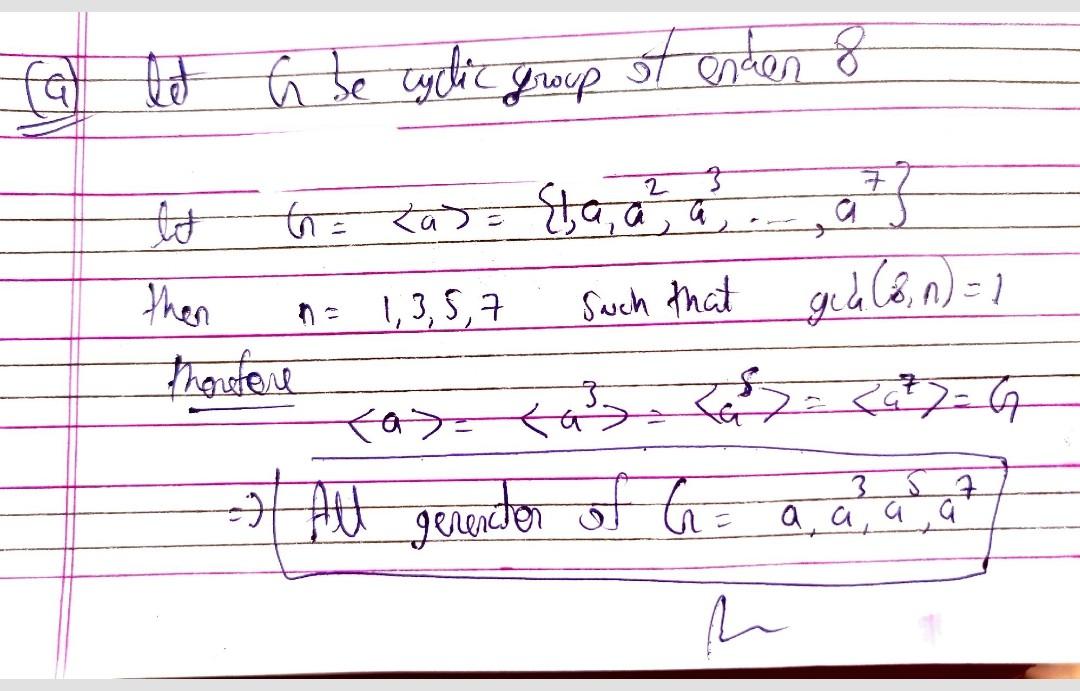 (a) let G be cyclic group of order 8
let G = <a> = {1, a, a², a³, ..., a⁷}
then n = 1, 3, 5, 7 Such that gcd(8, n) = 1
Therefore
<a> = <a³> = <a⁵> = <a⁷> = G
=> All generator of G = a, a³, a⁵, a⁷